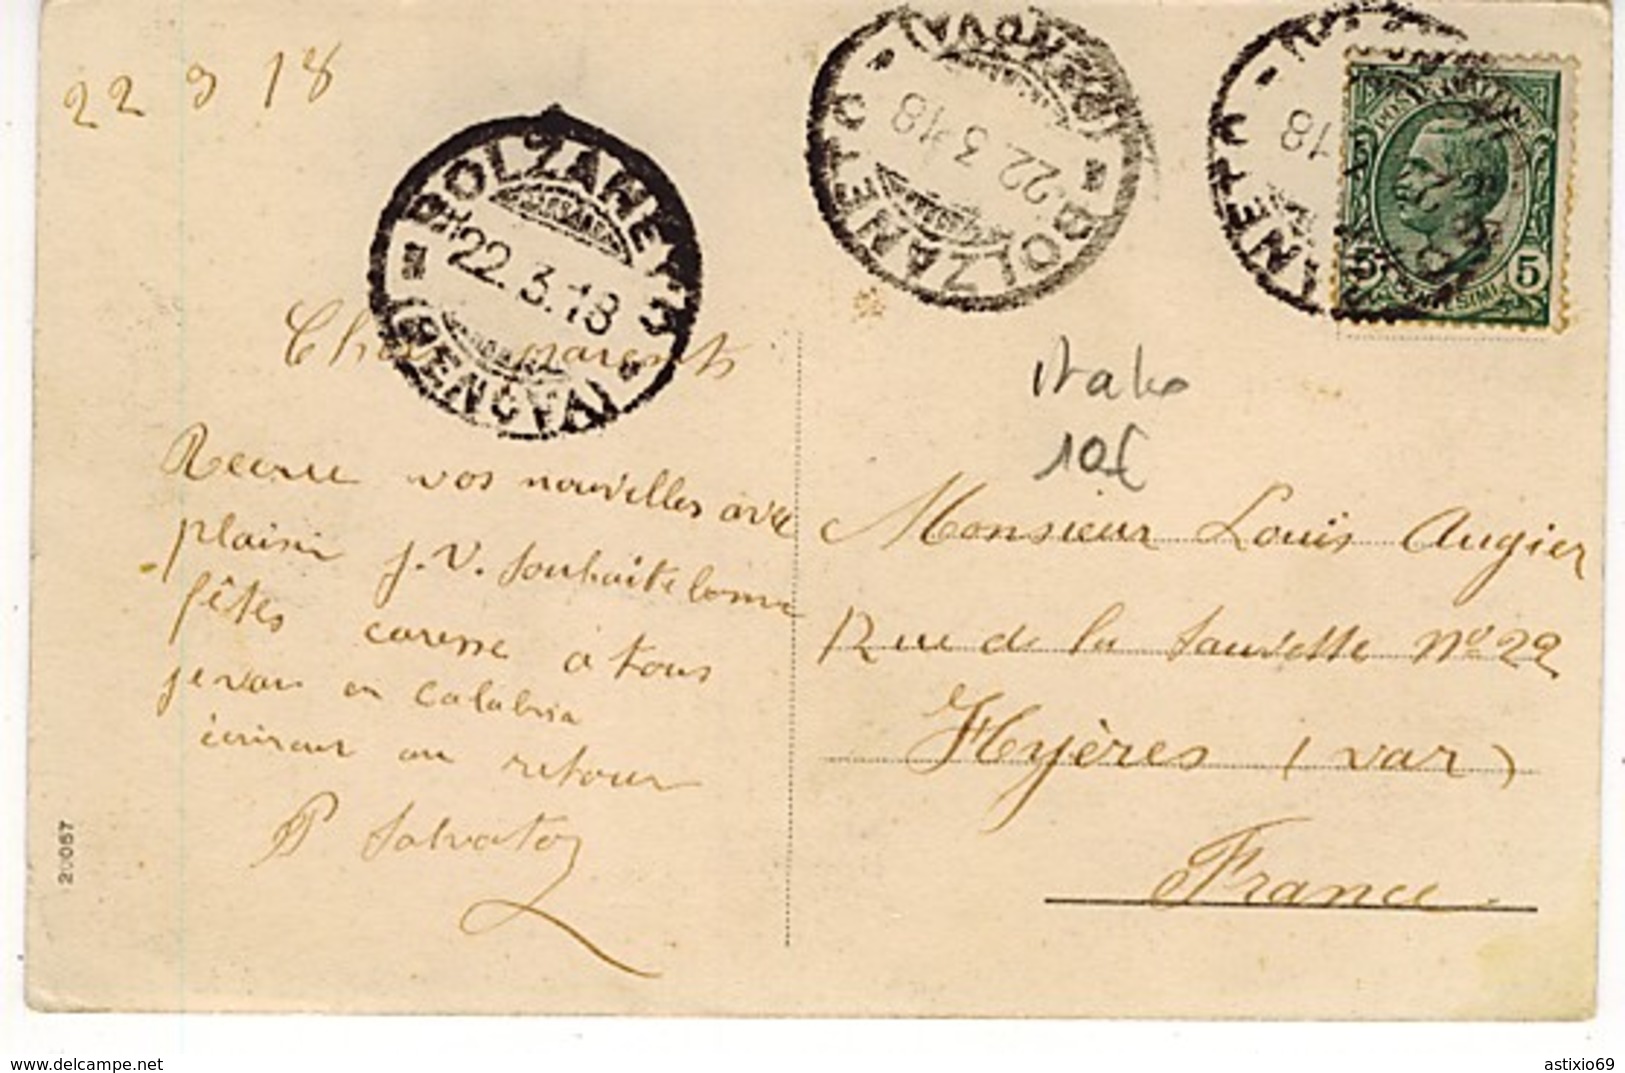 22 3 18
BOLZANETO
22.3.18
(GENOVA)
BOLZANETO
22.3.18
(GENOVA)
NETO
18
POSTE ITALIANE
5 CENTESIMI 5
italie
10€
Chers parents
Recevue vos nouvelles avec
plaisir J.V. souhaite bonne
fêtes caresse à tous
je vais en Calabria
écrirai au retour
P Salvator
Monsieur Louis Augier
Rue de la Sauvette Nº 22
Hyères (Var)
France
20057
www.delcampe.net
astixio69